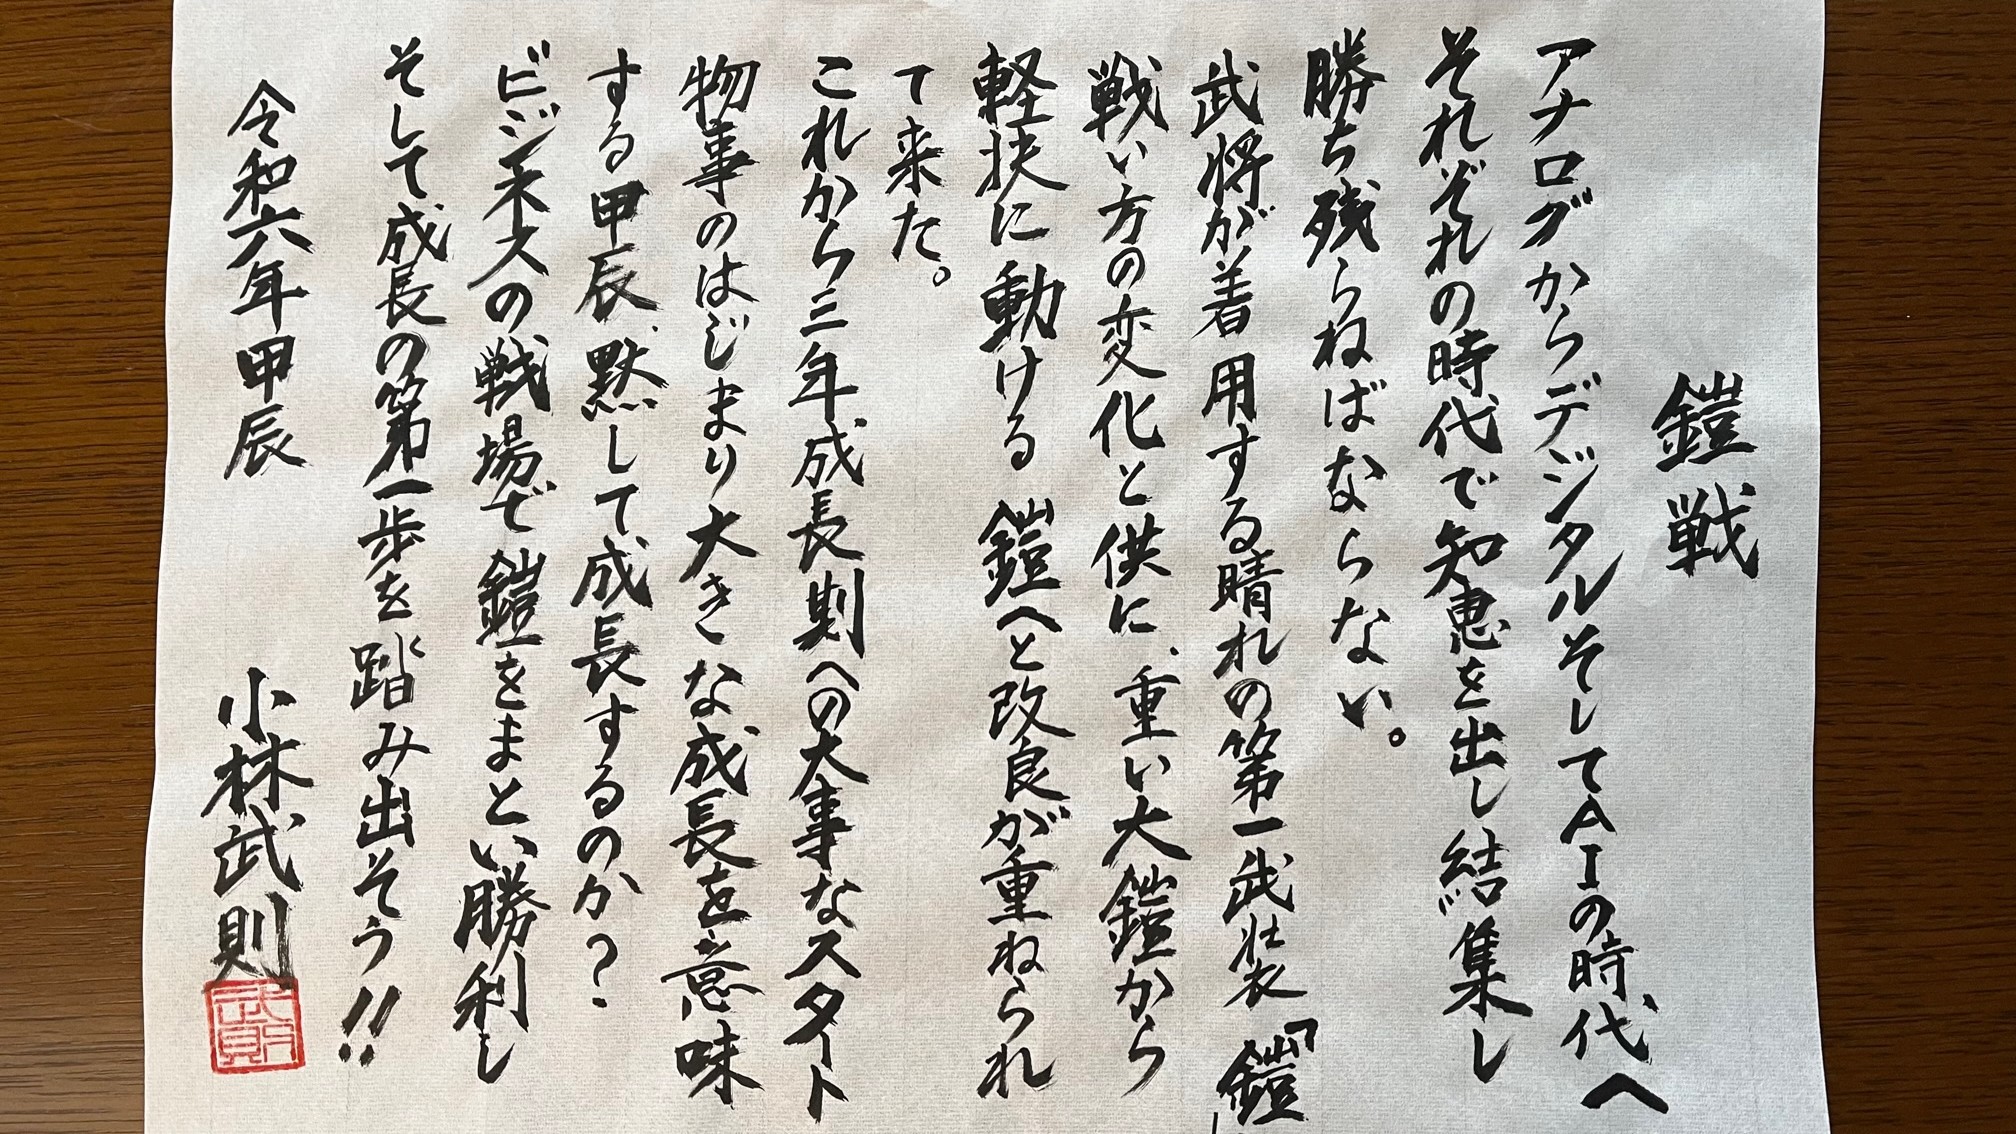 鎧戦
アナログからデジタルそしてAIの時代へ
それぞれの時代で知恵を出し結集し
勝ち残らねばならない。
武将が着用する晴れの第一武装「鎧」
戦い方の変化と供に、重い大鎧から
軽快に動ける鎧へと改良が重ねられ
て来た。
これから三年成長則への大事なスタート
物事のはじまり大きな成長を意味
する甲辰、黙して成長するのか？
ビジネスの戦場で鎧をまとい勝利し
そして成長の第一歩を踏み出そう!!
令和六年甲辰 小林武則
武則